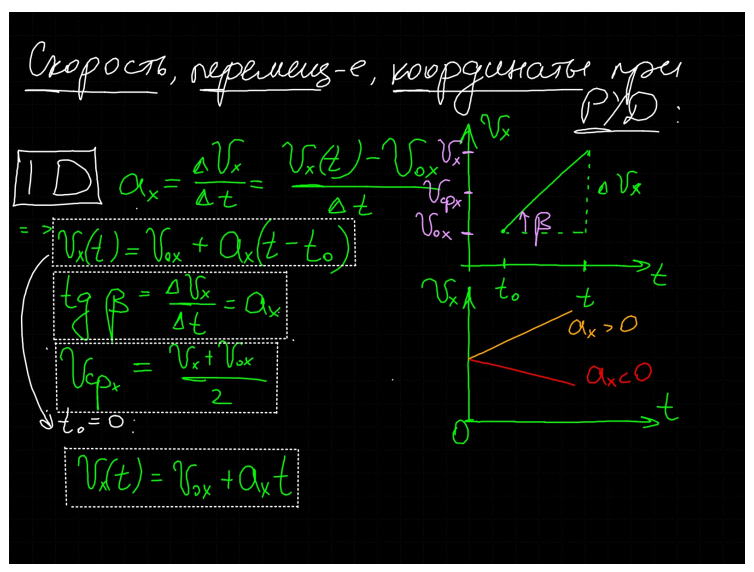 Скорость, перемещ-е, координаты при
РУД:
1D
aₓ = ΔVₓ/Δt = (Vₓ(t) - V₀ₓ)/Δt
=> Vₓ(t) = V₀ₓ + aₓ(t - t₀)
tg β = ΔVₓ/Δt = aₓ
Vсрₓ = (Vₓ + V₀ₓ)/2
t₀ = 0:
Vₓ(t) = V₀ₓ + aₓt
Vₓ
Vₓ
Vсрₓ
V₀ₓ
β
ΔVₓ
t₀
t
t
Vₓ
aₓ > 0
aₓ < 0
0
t